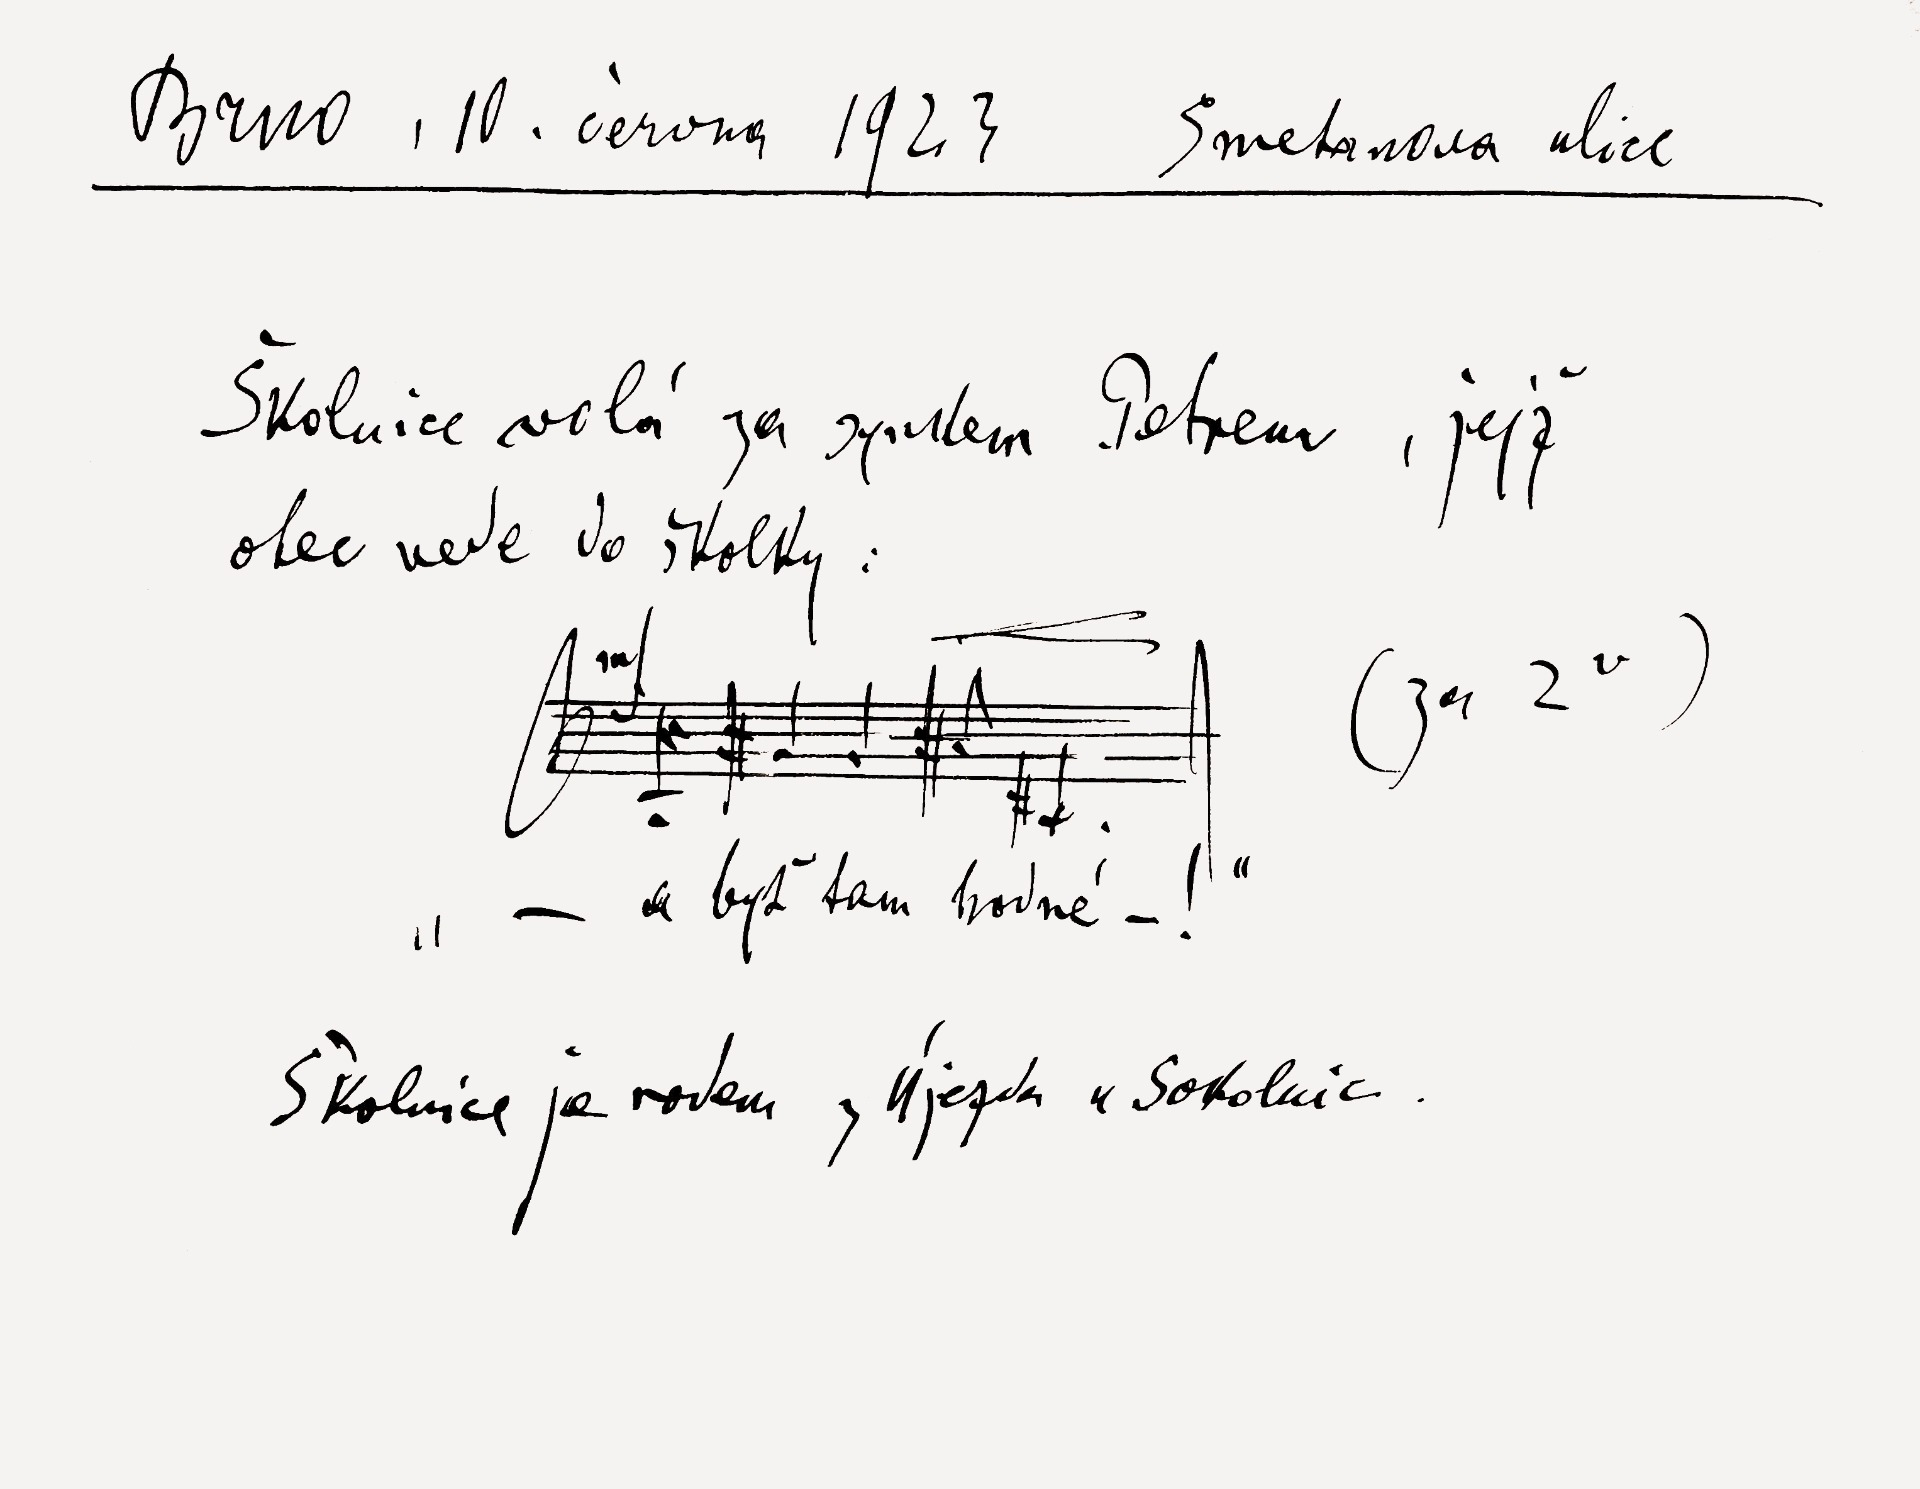 Brno, 10. června 1923 Smetanova ulice
Školnice volá za synkem Petrem, jejž
otec vede do školky:
mf
(za 2ᵛ)
„ — a byť tam hodné —! “
Školnice je rodem z Újezda u Sokolnic.